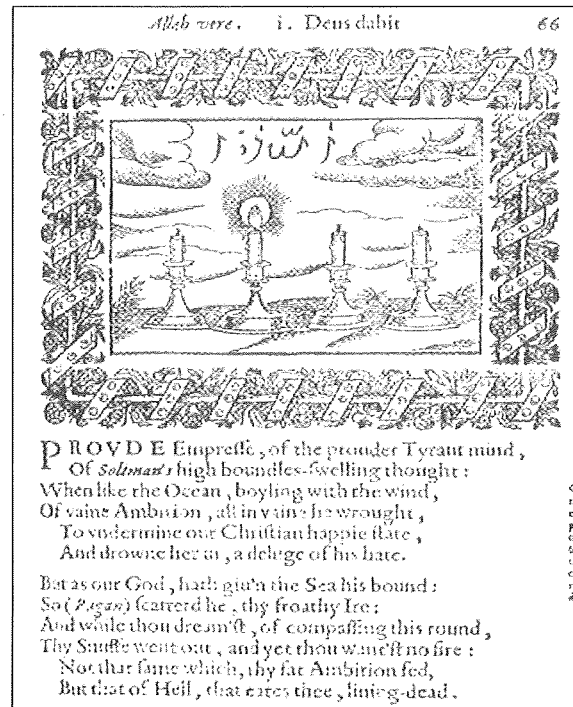 Allah vere. i. Deus dabit 66
PROVDE Empresse, of the prouder Tyrant mind,
Of Soliman's high boundles-swelling thought:
When like the Ocean, boyling with the wind,
Of vaine Ambition, all in vaine he wrought,
To vndermine our Christian happie state,
And drowne her in, a deluge of his hate.
But as our God, hath giu'n the Sea his bound:
So (Pagan) scatterd he, thy froathy Ire:
And while thou dream'st, of compassing this round,
Thy Snuffe went out, and yet thou want'st no fire:
Not that same which, thy fat Ambition fed,
But that of Hell, that eates thee, liuing-dead.